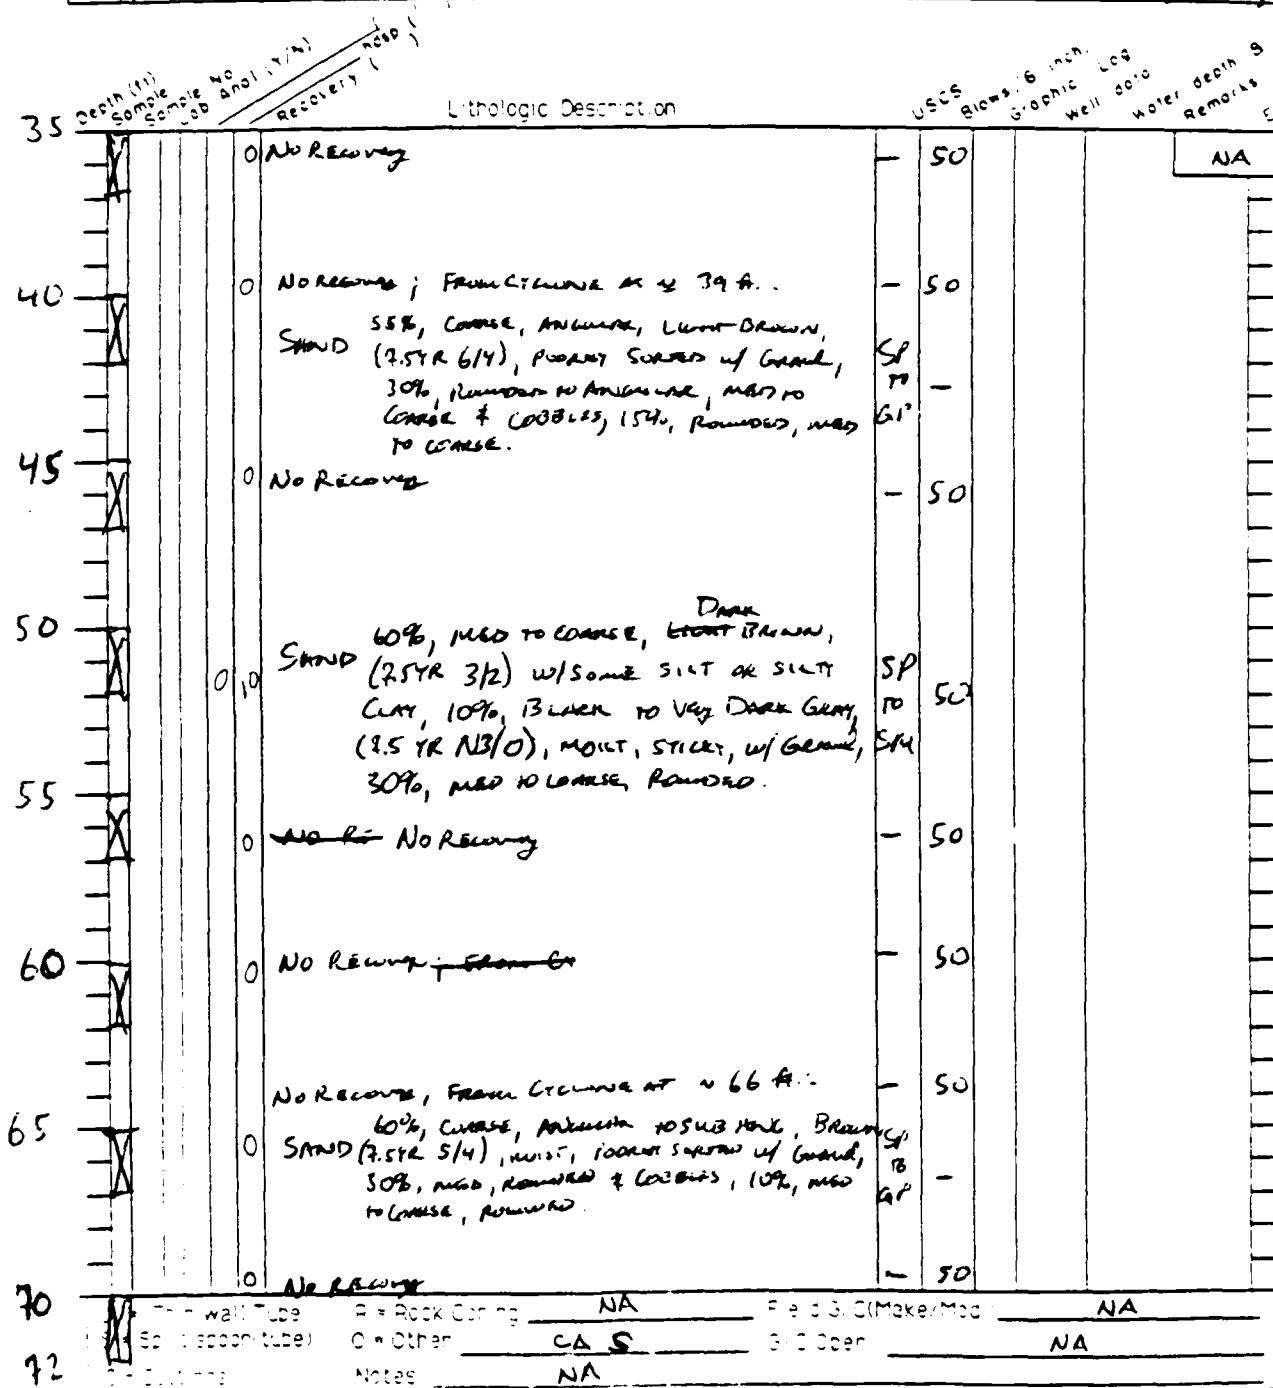 Depth (ft)
Sample
Sample No
Lab Anal (Y/N)
Recovery ( )
Lithologic Description
USCS
Blows/6 inch.
Graphic Log
Well data
Water depth
Remarks
35
0 No Recovery - 50 NA
40
0 No Recovery ; From Cyclone at ~ 39 ft..
- 50
SAND 55%, Coarse, Angular, Light Brown,
(7.5YR 6/4), Poorly Sorted w/ Gravel,
30%, Rounded to Angular, Med to
Coarse & Cobbles, 15%, Rounded, Med
to Coarse.
SP
to
GP
-
45
0 No Recovery - 50
50
Dark
SAND 60%, Med to Coarse, Light Brown,
(7.5YR 3/2) w/ Some Silt or Silty
Clay, 10%, Black to Very Dark Gray,
(7.5 YR N3/0), Moist, Sticky, w/ Gravel,
30%, Med to Coarse, Rounded.
SP
to
SM
50
55
0 No Re No Recovery - 50
60
0 No Recovery ; From Cy - 50
No Recovery, From Cyclone at ~ 66 ft.. - 50
65
0 SAND 60%, Coarse, Angular to Sub Ang, Brown
(7.5YR 5/4), Moist, Poorly Sorted w/ Gravel,
30%, Med, Rounded & Cobbles, 10%, Med
to Coarse, Rounded.
SP
to
GP
-
0 No Recovery - 50
70
Thin wall Tube R = Rock Coring NA Field GC(Make/Mod NA
Split spoon(tube) O = Other CA S G C Oper NA
72
Cuttings Notes NA